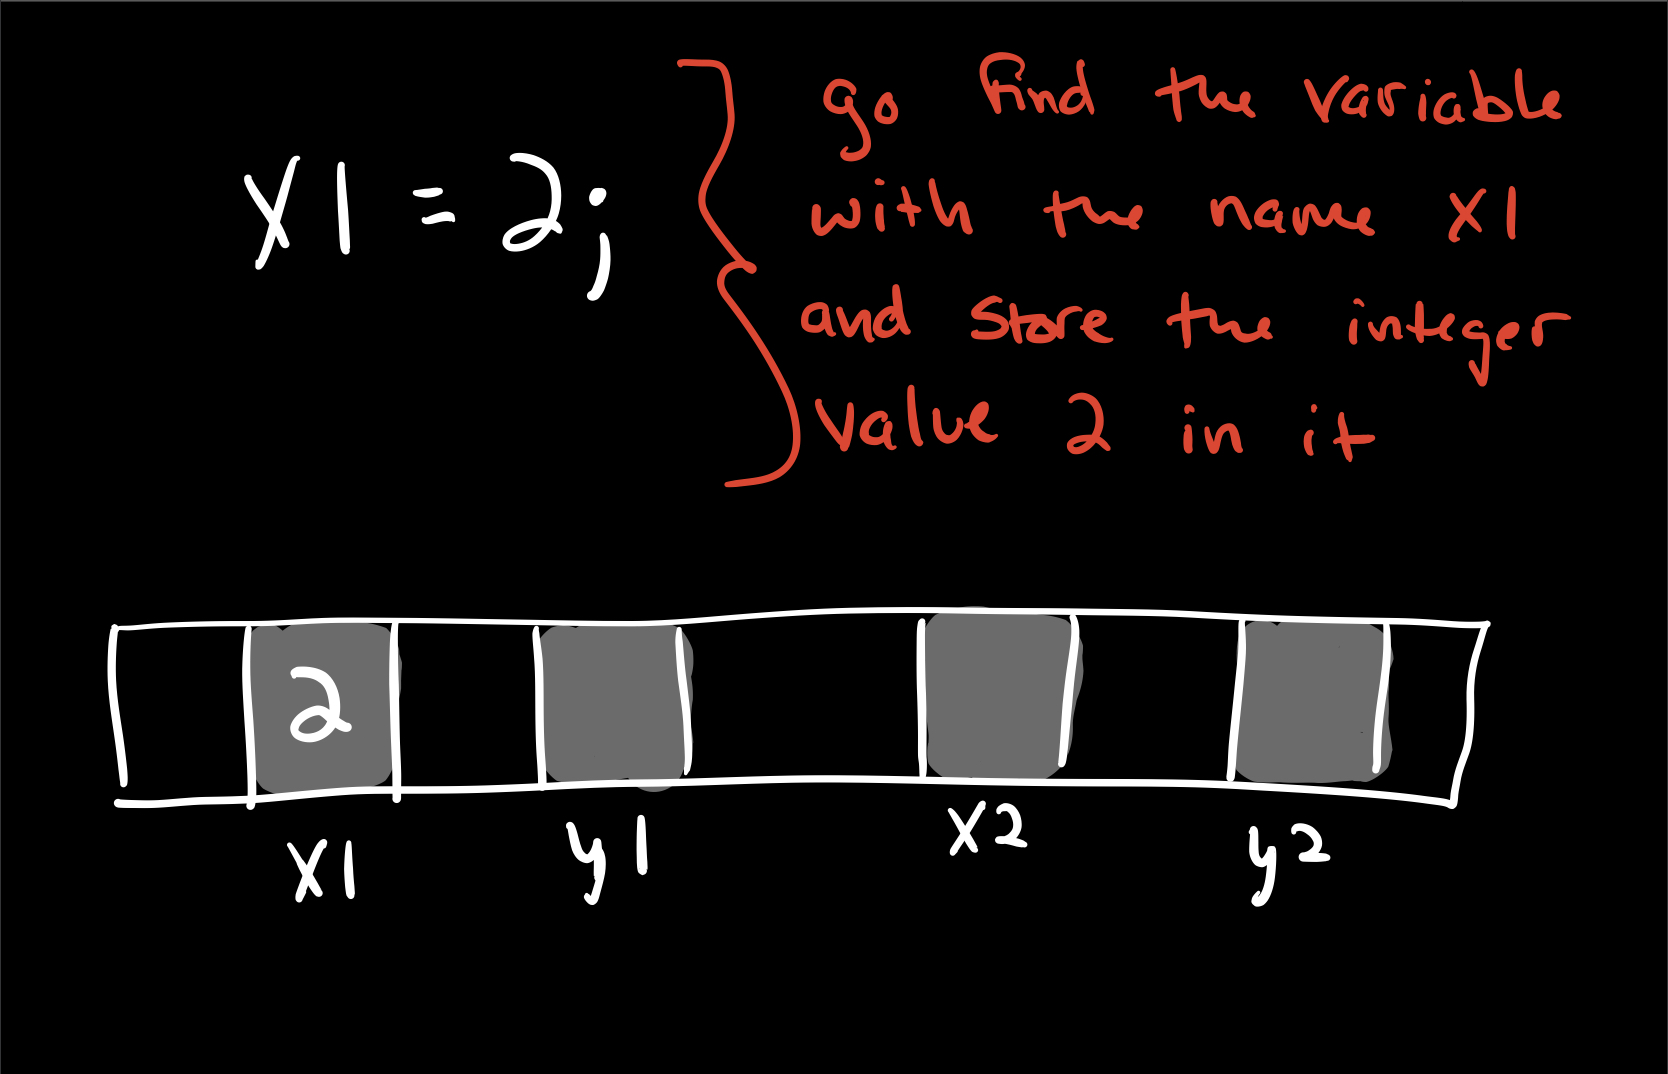 x1 = 2;
go find the variable
with the name x1
and store the integer
value 2 in it
2
x1 y1 x2 y2